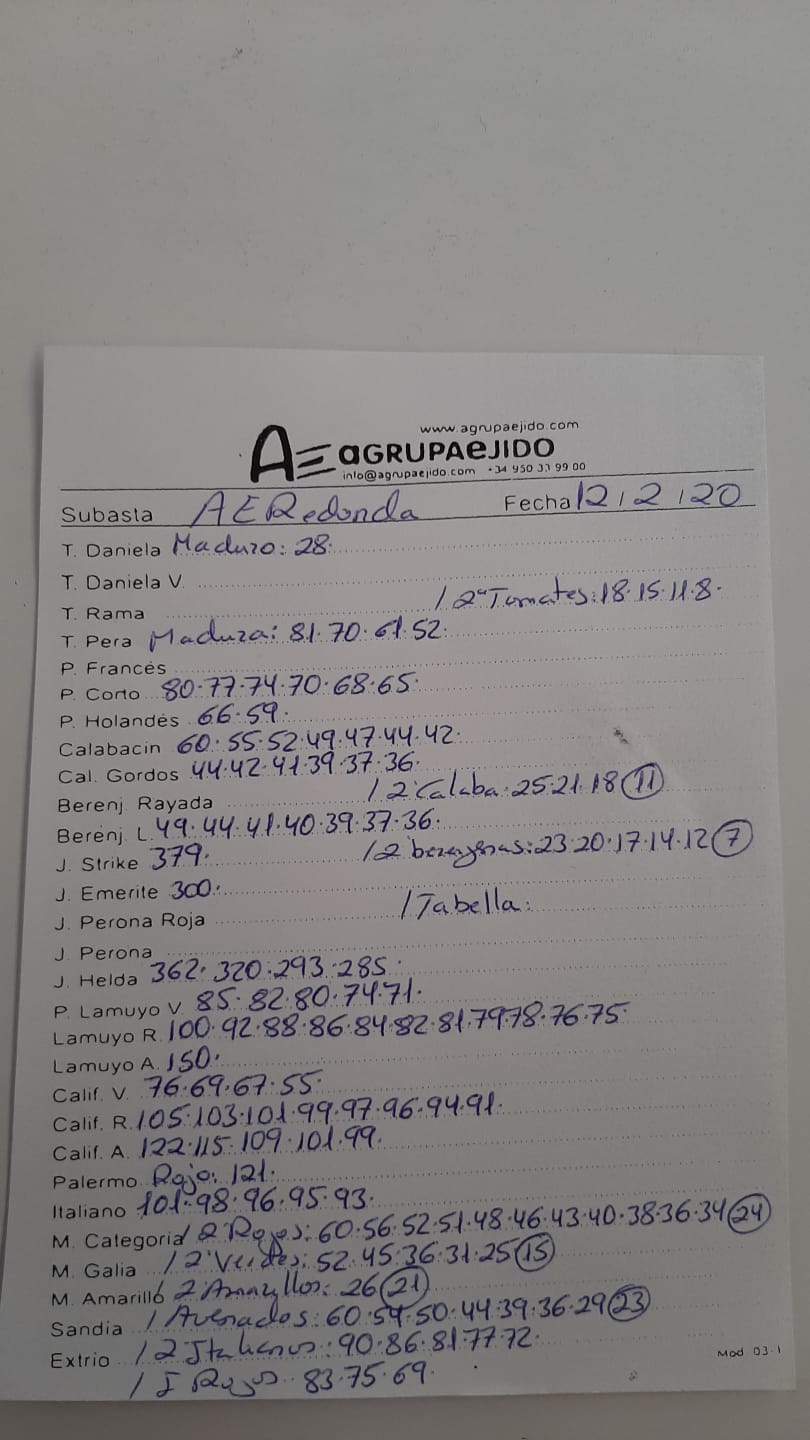 www.agrupaejido.com
AE aGRUPAeJIDO
info@agrupaejido.com +34 950 33 99 00
Subasta AERedonda Fecha 12/2/20
T. Daniela Maduro: 28.
T. Daniela V.
T. Rama / 2ª Tomates: 18·15·11·8·
T. Pera Madura: 81·70·61·52·
P. Francés
P. Corto 80·77·74·70·68·65·
P. Holandés 66·59·
Calabacin 60·55·52·49·47·44·42·
Cal. Gordos 44·42·41·39·37·36·
Berenj. Rayada / 2ª Calaba·25·21·18 (11)
Berenj. L. 49·44·41·40·39·37·36·
J. Strike 379· / 2 berenjenas: 23·20·17·14·12 (7)
J. Emerite 300·
J. Perona Roja / Tabella:
J. Perona
J. Helda 362·320·293·285·
P. Lamuyo V. 85·82·80·74·71·
Lamuyo R. 100·92·88·86·84·82·81·79·78·76·75·
Lamuyo A. 150·
Calif. V. 76·69·67·55·
Calif. R. 105·103·101·99·97·96·94·91·
Calif. A. 122·115·109·101·99·
Palermo Rojo: 121·
Italiano 101·98·96·95·93·
M. Categoria / 2ª Rojos: 60·56·52·51·48·46·43·40·38·36·34 (24)
M. Galia / 2ª Verdes: 52·45·36·31·25 (15)
M. Amarillo / 2 Amaryllos: 26 (21)
Sandia / Asurados: 60·54·50·44·39·36·29 (23)
Extrio / 2 Italianos: 90·86·81·77·72·
/ I Rojos 83·75·69·
Mod 03-1